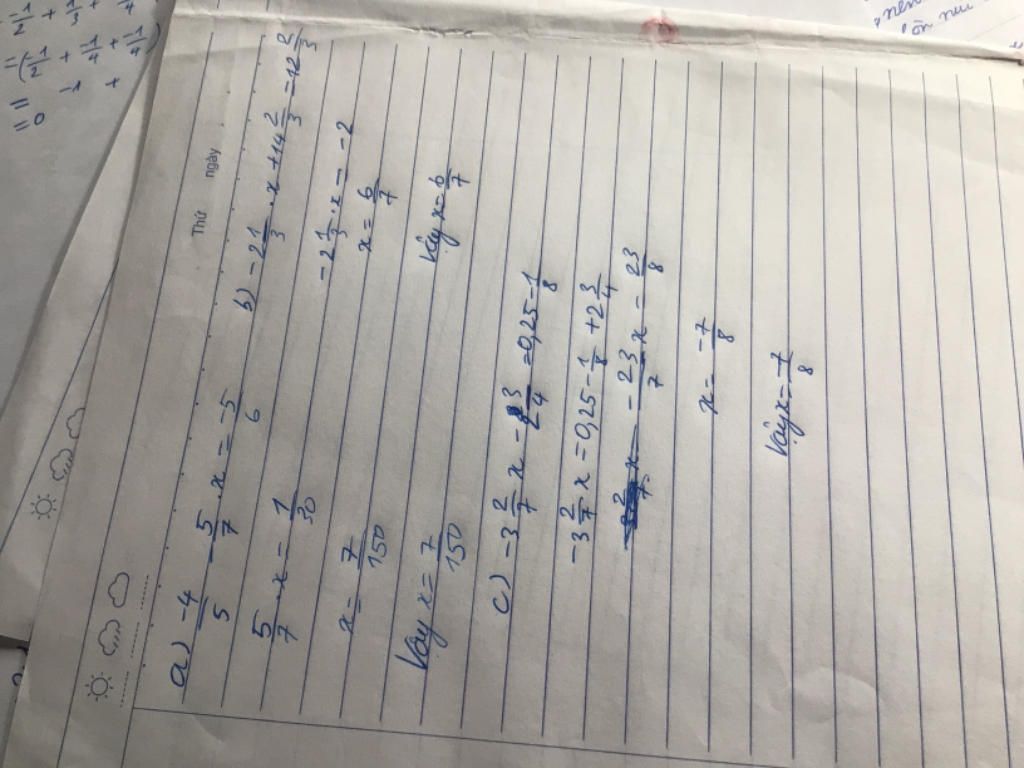 Thứ ngày
a) -4/5 - 5/7 . x = -5/6
5/7 . x = 1/30
x = 7/150
Vậy x = 7/150
b) -2 1/3 . x + 14 2/3 = 12 2/3
-2 1/3 . x = -2
x = 6/7
Vậy x = 6/7
c) -3 2/7 x - 2 3/4 = 0,25 - 1/8
-3 2/7 x = 0,25 - 1/8 + 2 3/4
-23/7 x = 23/8
x = -7/8
Vậy x = -7/8
=0